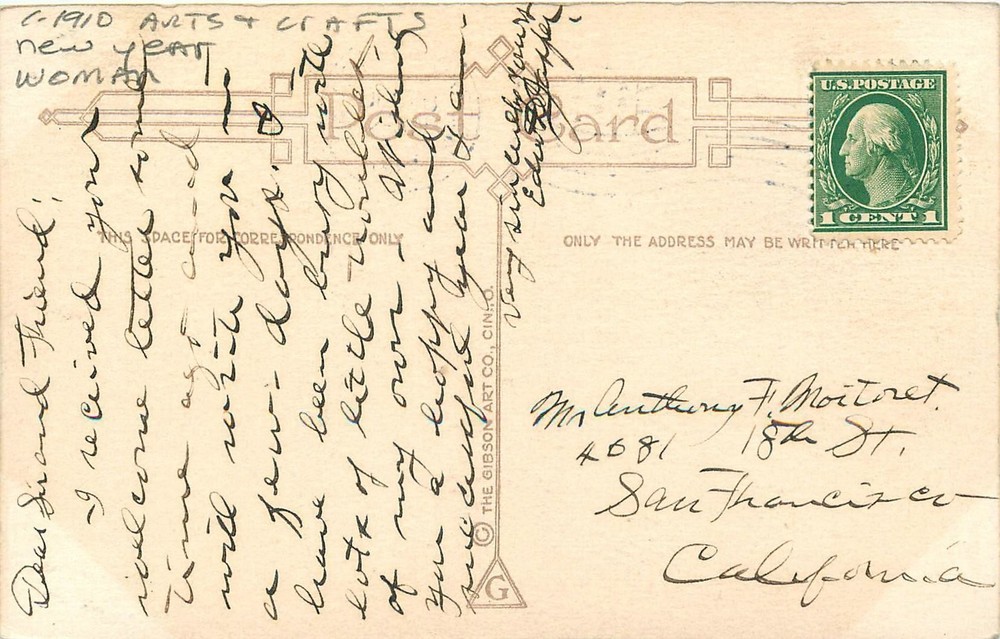 C-1910 ARTS + CRAFTS
NEW YEAR
WOMAN
Post Card
U.S. POSTAGE
1 CENT 1
THIS SPACE FOR CORRESPONDENCE ONLY
ONLY THE ADDRESS MAY BE WRITTEN HERE
Dear Sir and Friend:
I received your
welcome letter some
time ago and
will write you in
a few days. I
have been busy with
lots of little worklets
of my own. Wishing
you a happy and
successful year I am -
Very sincerely yours
Edw.
© THE GIBSON ART CO., CIN., O.
G
Mr Anthony F. Moitoret.
4081 18th St.
San Francisco
California